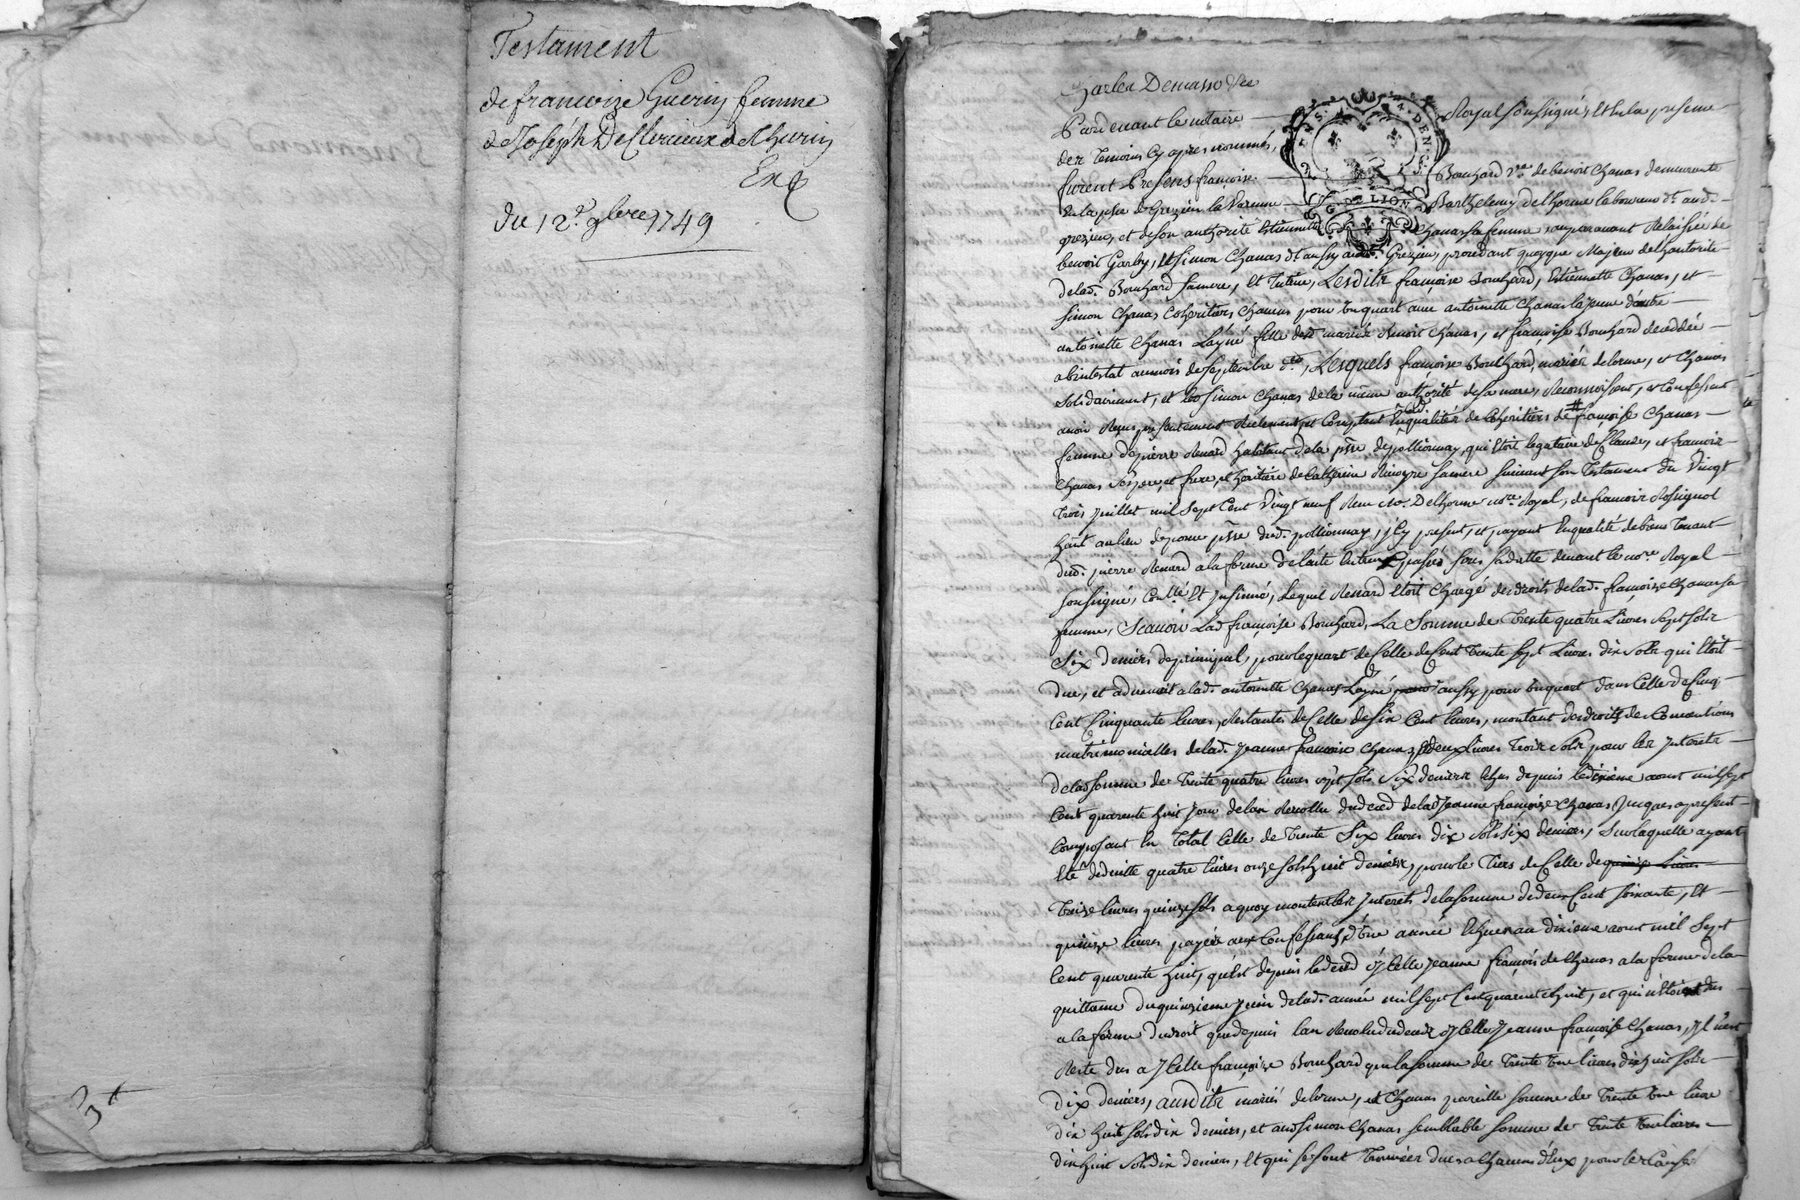 Testament
de francoize Guerin femme
de Joseph De Clerieux de Thurin
Ex
du 12e. 9bre 1749
3
Pardevant le notaire Royal soussigné, et en la presence
des temoins cy apres nommés,
furent Presens françoise Bouchard ve. de benoit Chanas demeurante
en la psse de Grezieu la Varenne Barthelemy delhorme laboureur dt. aud.
grezieu, et de son authorité Etiennette Chanas sa femme, auparavant Relaissée de
benoit Garby, et simon Chanas dt aussy aud. Grezieu, procedant quoyque Majeur de l'hautorité
de lad. Bouchard sa mere, et tutrice, Lesdits françoise Bouchard, Etiennette Chanas, et
simon Chanas Coheritiers chacun pour un quart avec antoinette Chanas la jeune d'autre
antoinette Chanas Layné fille desd. mariés Benoit Chanas, et françoise Bouchard decedée
abintestat au mois de septembre dr., Lesquels françoise Bouchard, mariés delorme, et Chanas
solidairement, et led simon Chanas de la même authorité de sa mere, Reconnoissent, et Confessent
avoir Reçu presentement Réelement et Comptant en qualité de Coheritiers de françoise Chanas
femme de pierre Renard habitant de la psse. de pollionnay, qui étoit legataire de Claude, et francois
Chanas ses pere, et frere, et heritiere de Catherine sa mere suivant son Testament du Vingt
trois juillet mil sept Cent Vingt neuf Reçu Me. Delhorme nore. Royal, de francois Rossignol
psse dud. pollionnay, jcy present, et payant en qualité de biens tenant
dud. pierre Renard a la forme de l'acte entreux passés devant le nore Royal
soussigné, Conllé et jnsinué, Lequel Renard étoit Chargé des droits de lad. françoise Chanas sa
femme, Scavoir Lad françoise Bouchard, La Somme de Trente quatre Livres sept sols
Six deniers de principal, pour le quart de Celle de Cent trente sept Livres dix sols qui étoit
due, et advenoit a lad. antoinette Chanas Layné aussy pour un quart dans Celle de Cinq
Cent Cinquante livres, Restantes de Celle de six Cent livres, montant des droits de Conventions
matrimonialles de lad. jeanne françoise Chanas, deux livres trois sols pour les jnterets
de lad somme de Trente quatre livres sept sols six deniers echus depuis le dixieme aoust mil sept
Cent quarente huit jour de lan Revollu du deced de lad jeanne françoise Chanas jusques a present
Composant en total Celle de Trente Six livres dix sols six deniers, sur laquelle ayant
Eté deduitte quatre livres onze sols huit deniers, pour le Tiers de Celle de quinze Livres
treize livres quinze sols a quoy montent les jnterets de la somme de deux Cent soixante, et
quinze livres payée aux Confessants d'une année Echue au dixieme aoust mil sept
Cent quarente huit, qu'est depuis le deced d'jcelle jeanne françoise Chanas a la forme de la
quittance du quinzieme juin de lad. année mil sept Cent quarente huit, et qui n'étoient dus
a la forme du droit que depuis lan Revolu du deced d'jcelle jeanne françoise Chanas, jl n'est
Reste dus a jcelle françoise Bouchard que la somme de Trente une livres dix huit sols
Dix deniers, ausdits mariés delorme, et Chanas pareille somme de Trente une livre
dix huit sols dix deniers, et aud simon Chanas semblable somme de Trente une livres
dix huit sols dix deniers, et qui se sont Trouvées dues a chacun d'eux pour les Causes